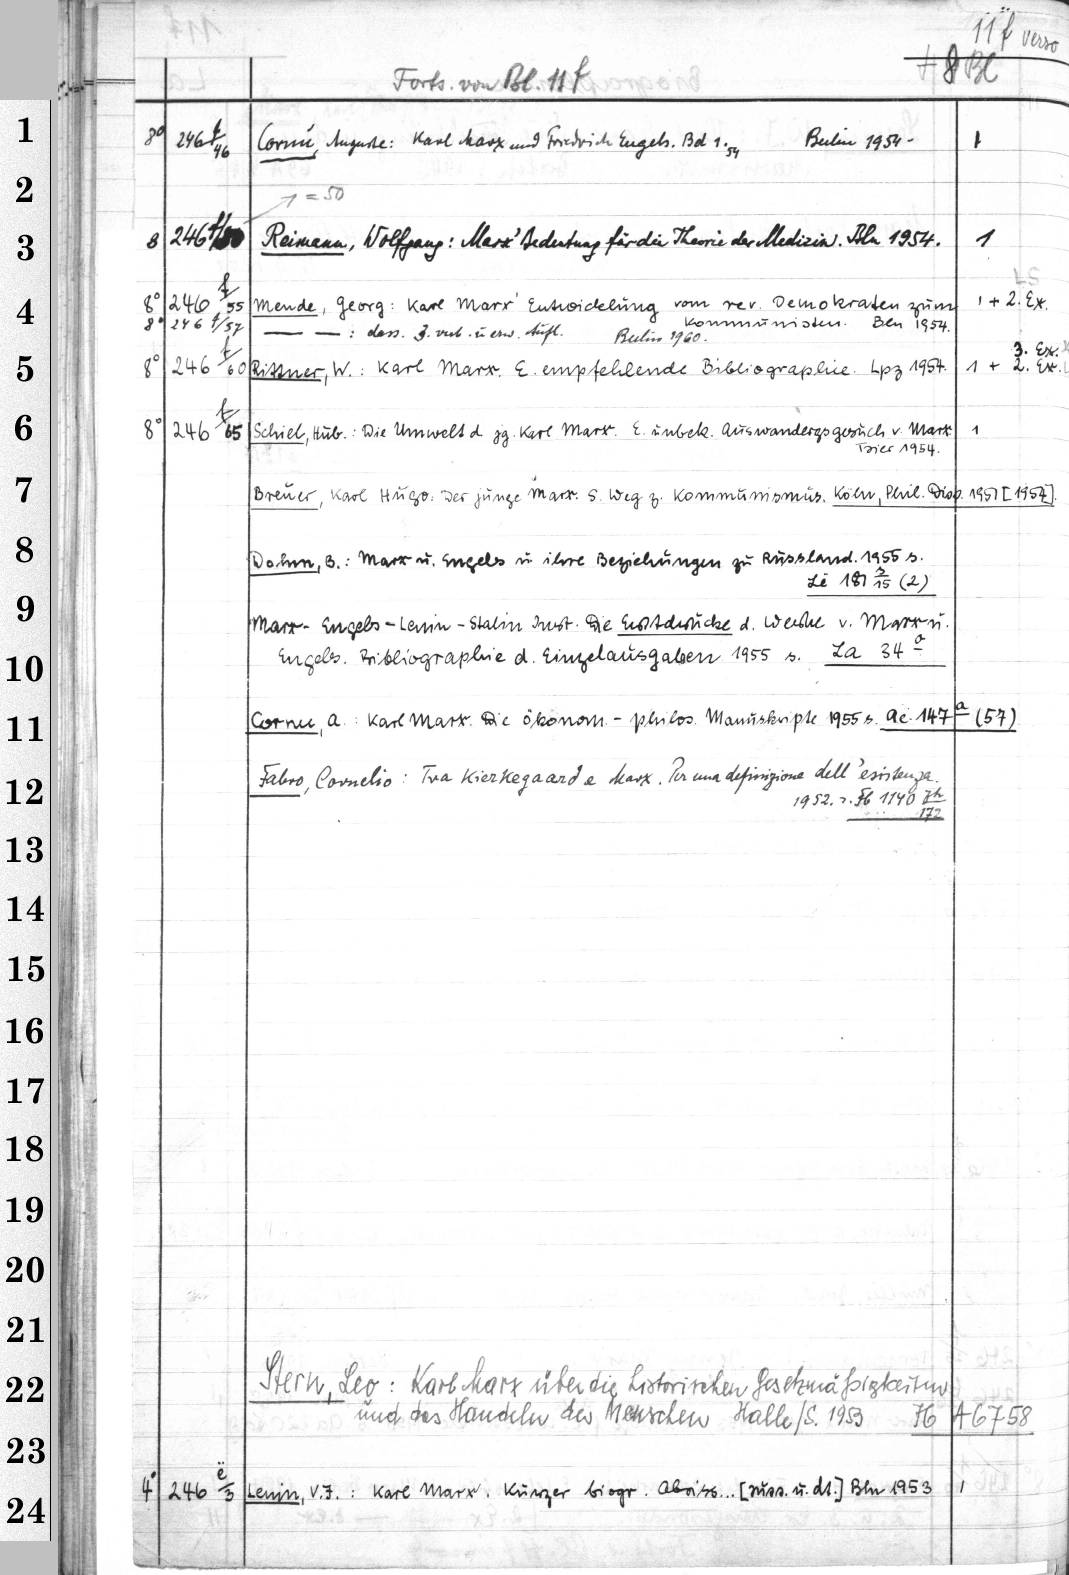 11 f verso
+ 8 Bl
Forts. von Bl. 11 f
1 8° 246 f/46 Cornu, Auguste: Karl Marx und Friedrich Engels. Bd 1. 54 Berlin 1954- 1
2 1 = 50
3 8 246 f/50 Reimann, Wolfgang: Marx' Bedeutung für die Theorie der Medizin. Bln 1954. 1
4 8° 246 f/55 Mende, Georg: Karl Marx' Entwicklung vom rev. Demokraten zum 1 + 2. Ex.
Kommunisten. Bln 1954.
8° 246 f/57 — — : dass. 3. verb. u. erw. Aufl. Berlin 1960.
3. Ex.
5 8° 246 f/60 Rittner, W.: Karl Marx. E. empfehlende Bibliographie. Lpz 1954. 1 + 2. Ex.
6 8° 246 f/65 Schiel, Hub.: Die Umwelt d. jg. Karl Marx. E. unbek. Auswandergsgesuch v. Marx 1
Trier 1954.
7 Breuer, Karl Hugo: Der junge Marx. S. Weg z. Kommunismus. Köln, Phil. Diss. 1951 [1954].
8 Dohm, B.: Marx u. Engels u ihre Beziehungen zu Russland. 1955 s.
Le 187 s/15 (2)
9 Marx-Engels-Lenin-Stalin Inst. Die Erstdrucke d. Werke v. Marx u.
10 Engels. Bibliographie d. Einzelausgaben 1955 s. La 34 a
11 Cornu, A.: Karl Marx. Die ökonom.-philos. Manuskripte 1955 s. Ac 147 a (57)
12 Fabro, Cornelio: Tra Kierkegaard e Marx. Per una definizione dell'esistenza.
1952. s. Fb 1140 172
13
14
15
16
17
18
19
20
21
22 Stern, Leo: Karl Marx über die historischen Gesetzmäßigkeiten
und das Handeln des Menschen Halle/S. 1953 Hb A 6758
23
24 4° 246 e/3 Lenin, V.J.: Karl Marx. Kurzer biogr. Abriss... [russ. u. dt.] Bln 1953 1